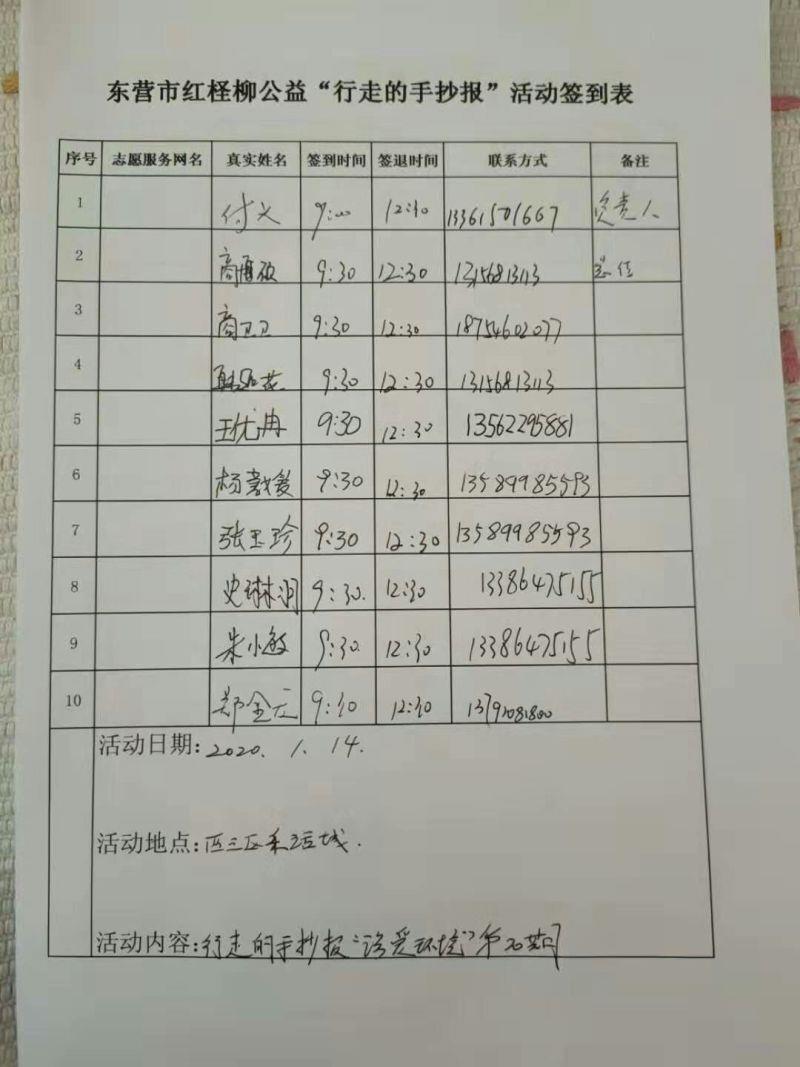 东营市红柽柳公益“行走的手抄报”活动签到表
序号 志愿服务网名 真实姓名 签到时间 签退时间 联系方式 备注
1 付义 9:00 12:30 13361501667 负责人
2 商 9:30 12:30 13156813113
3 商卫卫 9:30 12:30 18754602077
4 9:30 12:30 13156813113
5 王优冉 9:30 12:30 13562295881
6 杨 9:30 12:30 13589985593
7 张玉珍 9:30 12:30 13589985593
8 史琳润 9:30. 12:30 13386475155
9 朱小敏 9:30 12:30 13386475155
10 郑金元 9:30 12:30
活动日期: 2020. 1. 14.
活动地点:
活动内容: 行走的手抄报“ 爱环境”第 期